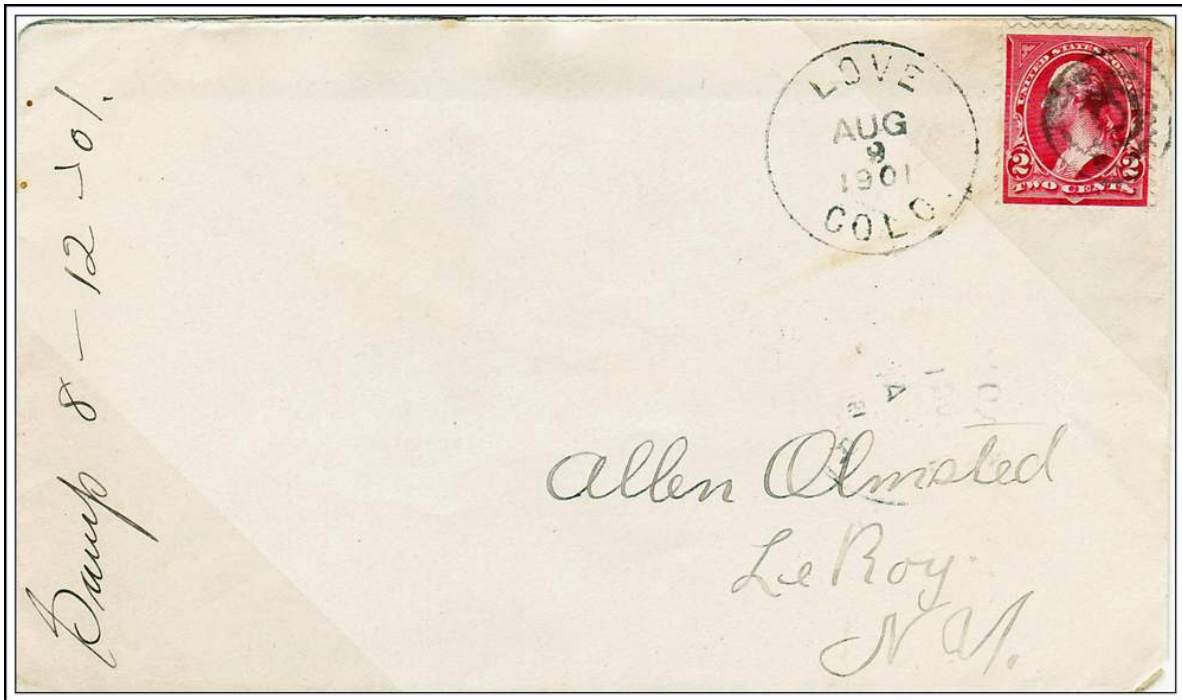 LOVE
AUG
9
1901
COLO.
UNITED STATES POSTAGE
2 2
TWO CENTS
8 - 12 - 01.
Allen Olmsted
Le Roy.
N.Y.